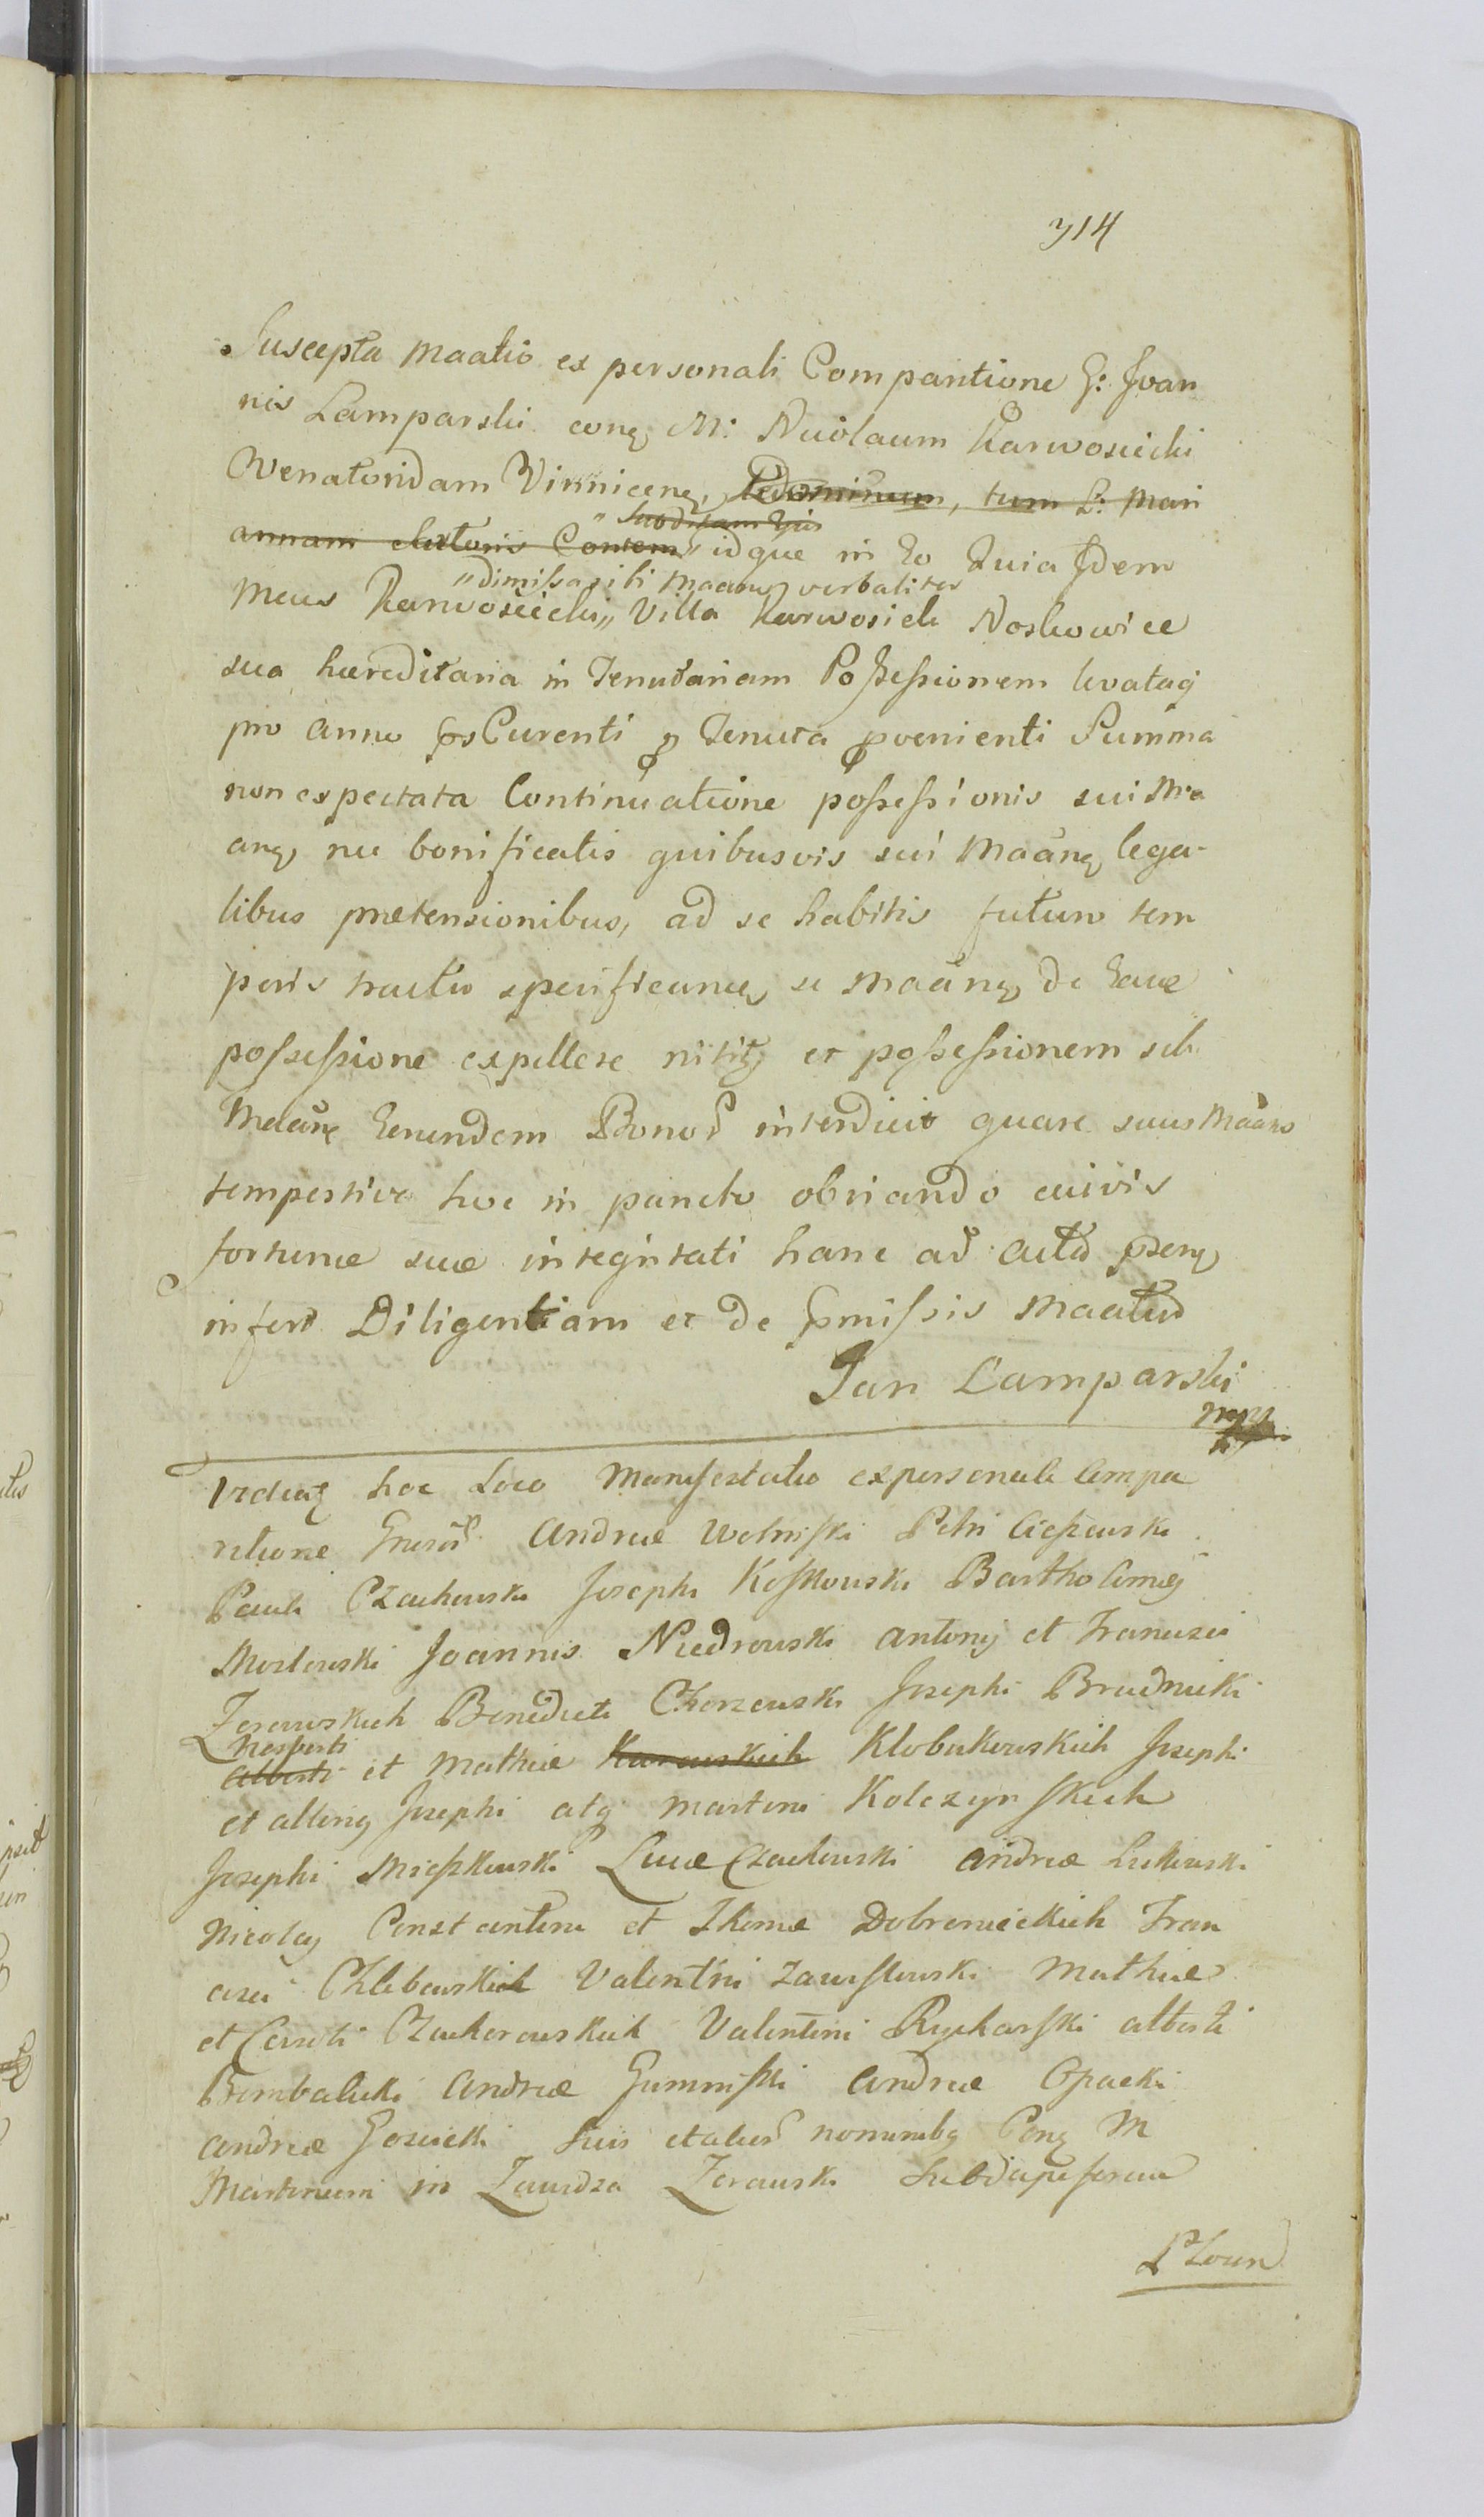 314
Suscepta Maatio ex personali Comparitione G: Joan
nis Lamparski conq M: Nicolaum Karwosiecki
Venatoridam Vinnicenq, Pedominum, tum L: Mari
annam Consem
"Subditam Ejus
" idque in Eo Quia Idem
"dimissa sibi Maanq verbaliter
Meus Karwosiecki,, Villa Karwosieki Noskowice
sua hæreditaria in Tenutariam Possessionem levataq
pro anno prsCurenti p Tenuta pvenienti Summa
non expectata Continuatione possessionis sui Ma
anq nec bonificatis quibusvis sui Maanq lega-
libus prætensionibus, ad se habitis futuro tem
poris tractu specificanq, se Maanq de Eave
possessione expellere nititq et possessionem sib
Eorundem Bonor interdicit quare suus Maans
tempestive hoc in puncto obviando cuivis
fortunæ suæ integritati hanc ad acta psenq
infert Diligentiam et de pmissis Maatur
Jan Lamparski
mpp
hoc Loco Manifestatio ex personali Compa
ritione Gnrosr Andreæ Wolniski Petri Cieszewski
Pauli Czachowski Josephi Koskowski Bartholomæj
Mortowski Joannis Niedrowski Antonij et Francisci
Benedicti Chorzewski Josephi Brudnicki
Norberti
Alberti et Mathiæ Karawskich Klobukowskich Josephi
et alteriq Josephi atq Martini Kolczynskich
Josephi Mieszkowski Lucæ Czachowski Andreæ Lukowski
Nicolaj Constantini et Thomæ Dobronieckich Fran
cisci Chlebowskich Valentini Zawistowski Mathiæ
et Czachorowskich Valentini Rycharski Alberti
Brembalicki Andreæ Guminski Andreæ Opacki
Andreæ Gosiecki Suis et alior nominibq Conq M
Martinum in Zawidza Zorawski Subdapiferum
Plocen